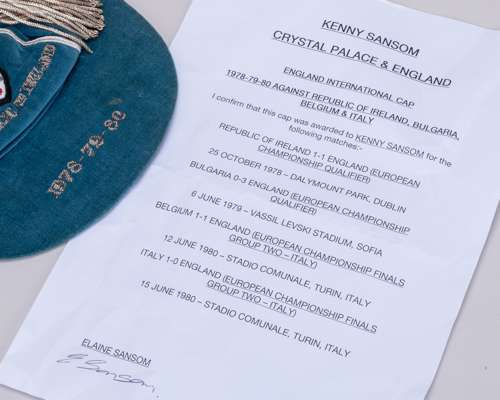 & IRELAND
1978-79-80
KENNY SANSOM
CRYSTAL PALACE & ENGLAND
ENGLAND INTERNATIONAL CAP
1978-79-80 AGAINST REPUBLIC OF IRELAND, BULGARIA,
BELGIUM & ITALY
I confirm that this cap was awarded to KENNY SANSOM for the
following matches:-
REPUBLIC OF IRELAND 1-1 ENGLAND (EUROPEAN
CHAMPIONSHIP QUALIFIER)
25 OCTOBER 1978 – DALYMOUNT PARK, DUBLIN
BULGARIA 0-3 ENGLAND (EUROPEAN CHAMPIONSHIP
QUALIFIER)
6 JUNE 1979 – VASSIL LEVSKI STADIUM, SOFIA
BELGIUM 1-1 ENGLAND (EUROPEAN CHAMPIONSHIP FINALS
GROUP TWO – ITALY)
12 JUNE 1980 – STADIO COMUNALE, TURIN, ITALY
ITALY 1-0 ENGLAND (EUROPEAN CHAMPIONSHIP FINALS
GROUP TWO – ITALY)
15 JUNE 1980 – STADIO COMUNALE, TURIN, ITALY
ELAINE SANSOM
E Sansom